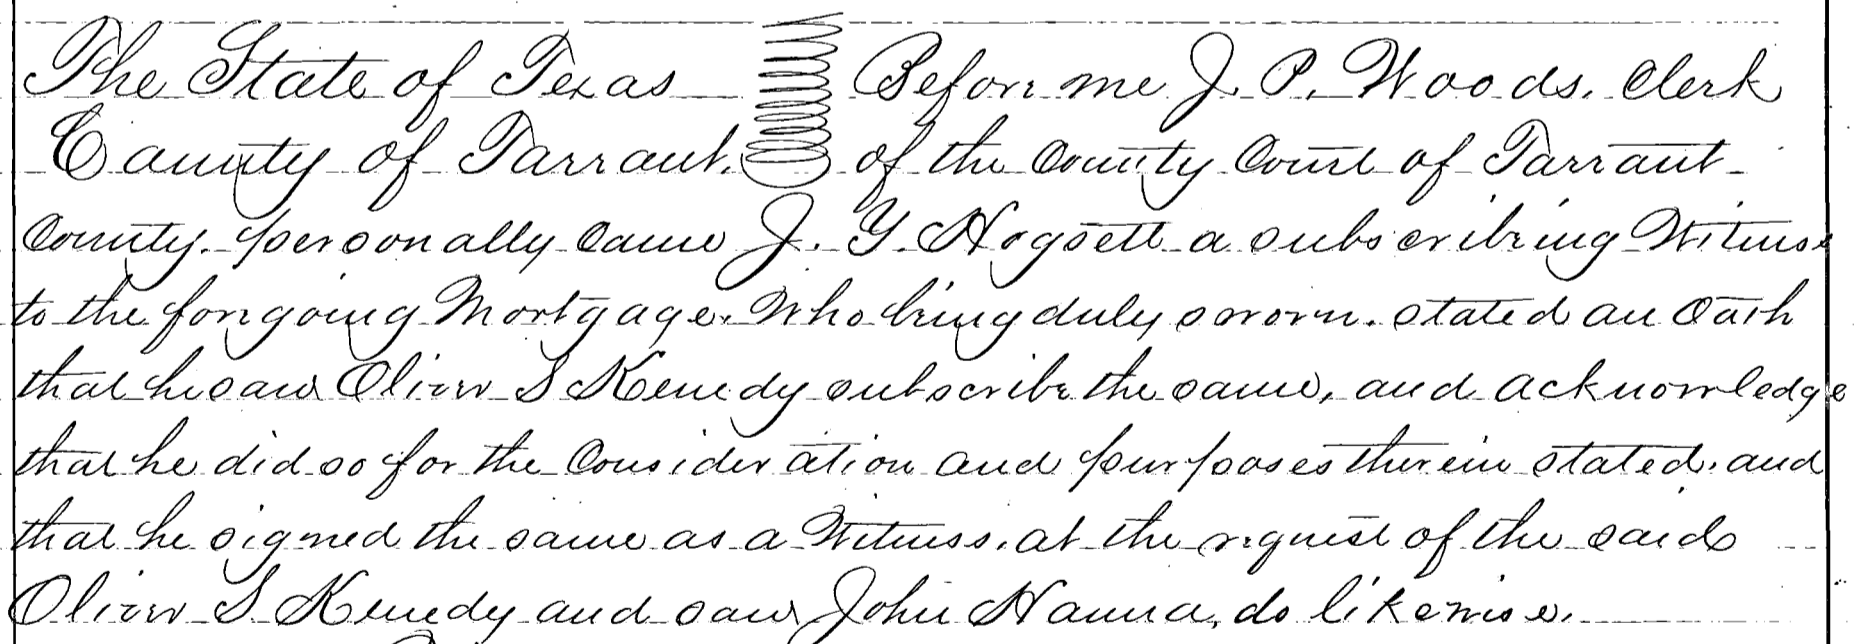 The State of Texas Before me J. P. Woods. Clerk
County of Tarrant. of the County Court of Tarrant
County. personally came J. Y. Hogsett a subscribing Witness
to the foregoing Mortgage. Who being duly sworn. stated on Oath
that he saw Oliver S Kenedy subscribe the same, and acknowledge
that he did so for the Consideration and purposes therein stated. and
that he signed the same as a Witness. at the request of the said
Oliver S Kenedy and saw John Hanna, do likewise.